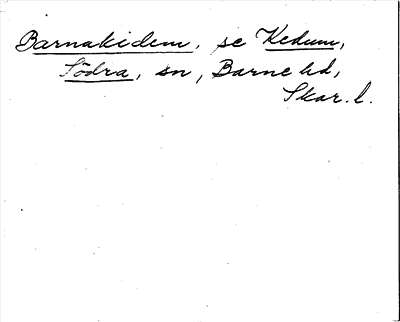 Barnakidem, se Kedum,
Södra, sn, Barne hd,
Skar. l.